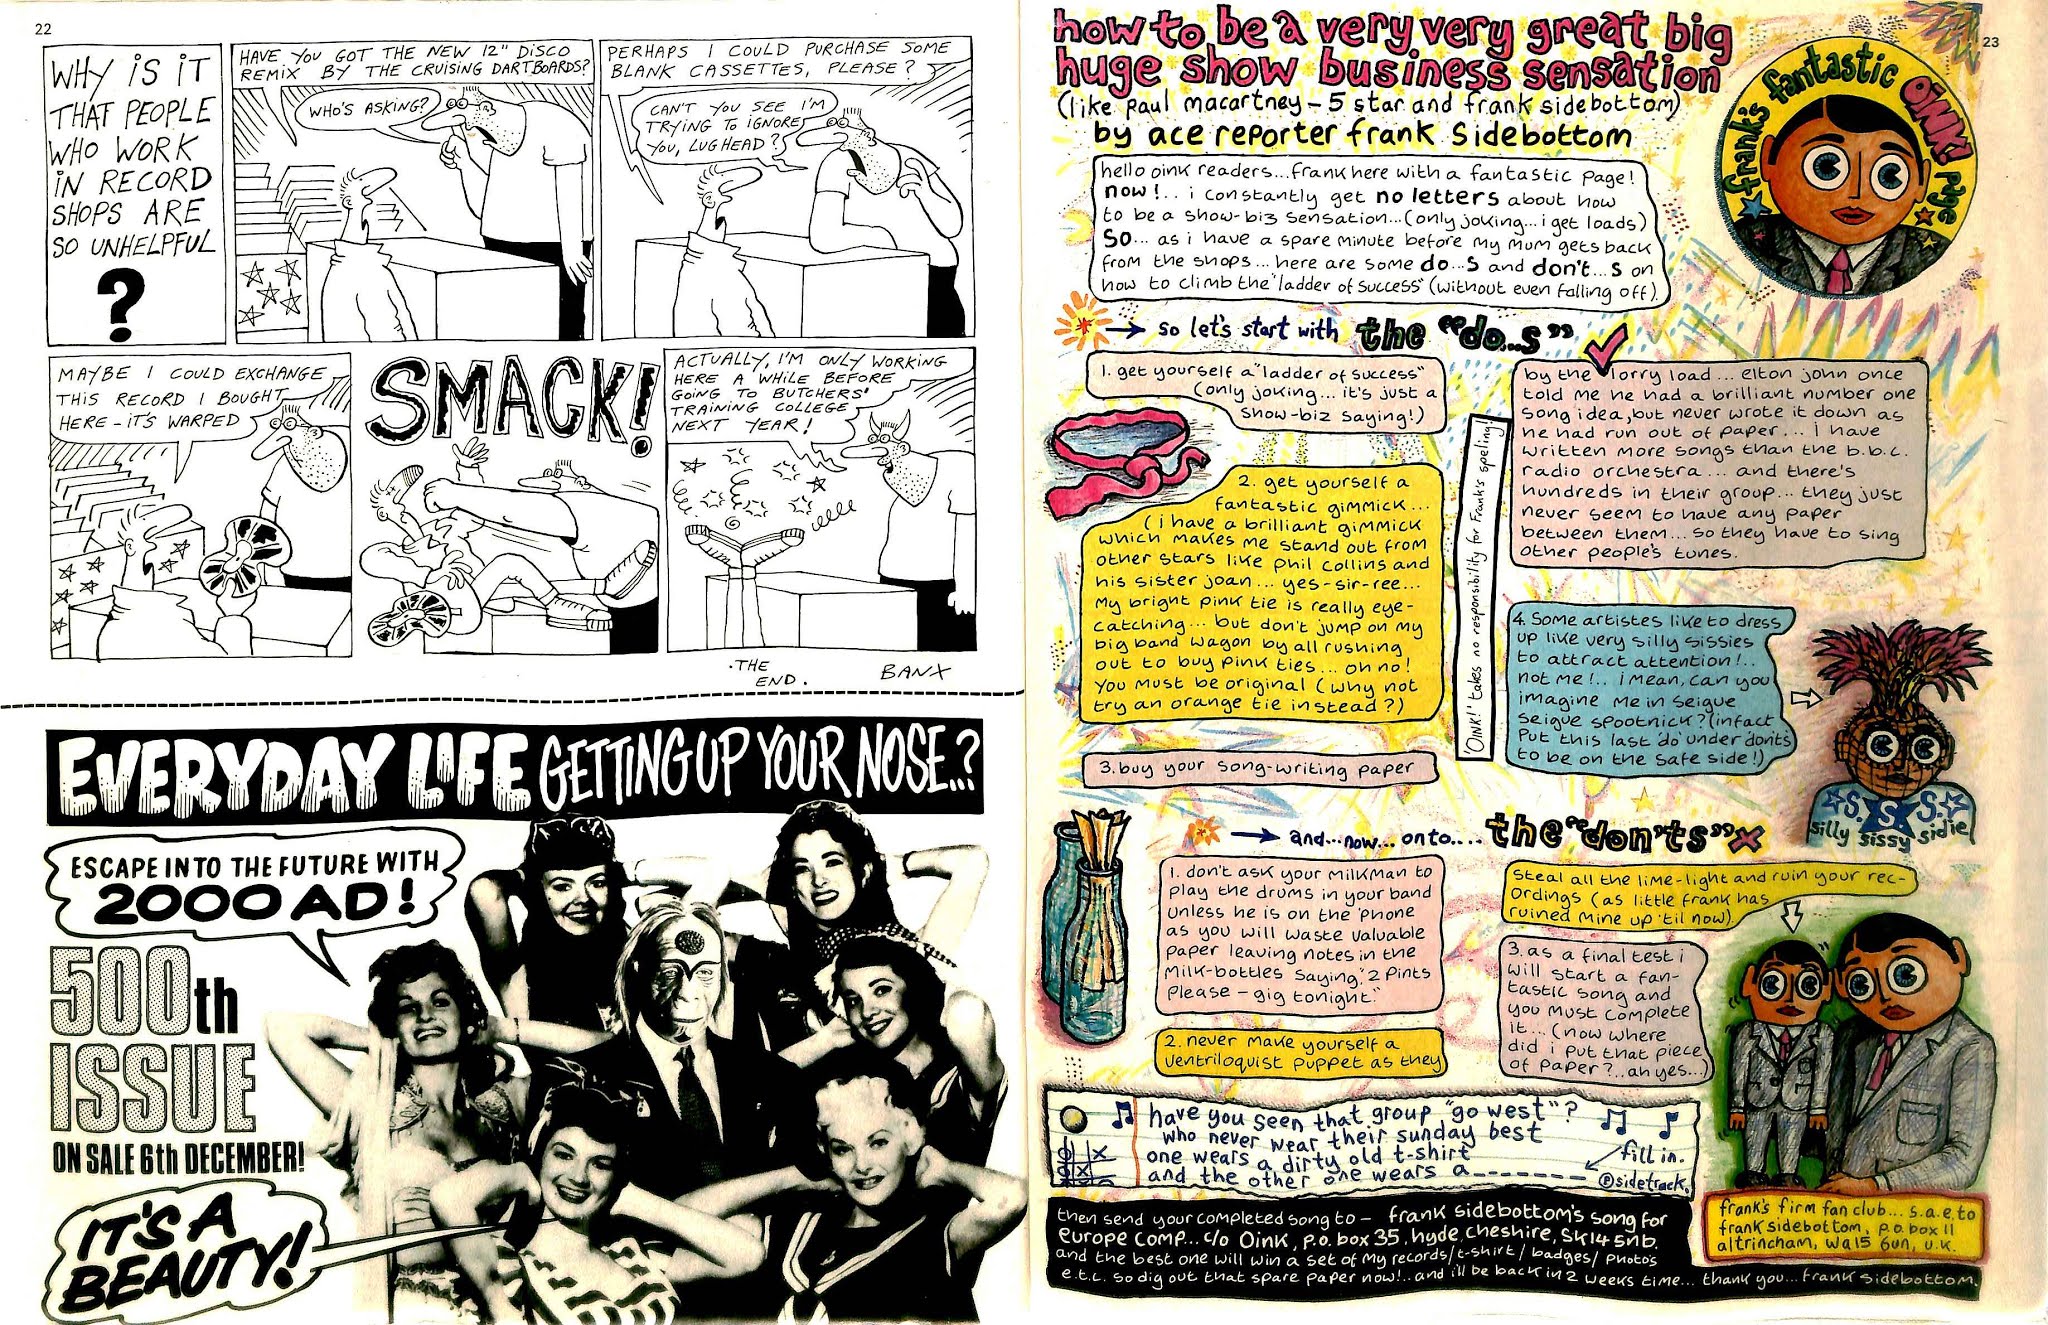 22
WHY IS IT
THAT PEOPLE
WHO WORK
IN RECORD
SHOPS ARE
SO UNHELPFUL
?
HAVE YOU GOT THE NEW 12" DISCO
REMIX BY THE CRUISING DARTBOARDS?
WHO'S ASKING?
PERHAPS I COULD PURCHASE SOME
BLANK CASSETTES, PLEASE?
CAN'T YOU SEE I'M
TRYING TO IGNORE
YOU, LUGHEAD?
MAYBE I COULD EXCHANGE
THIS RECORD I BOUGHT
HERE - IT'S WARPED
SMACK!
ACTUALLY, I'M ONLY WORKING
HERE A WHILE BEFORE
GOING TO BUTCHERS'
TRAINING COLLEGE
NEXT YEAR!
.THE
END.
BANX
EVERYDAY LIFE GETTING UP YOUR NOSE..?
ESCAPE INTO THE FUTURE WITH
2000 AD!
500th
ISSUE
ON SALE 6th DECEMBER!
IT'S A
BEAUTY!
23
how to be a very very great big
huge show business sensation
(like paul macartney - 5 star and frank sidebottom)
by ace reporter frank sidebottom
frank's fantastic OiNK! page
hello oink readers...frank here with a fantastic page!
now!.. i constantly get no letters about how
to be a show-biz sensation...(only joking...i get loads)
So... as i have a spare minute before my mum gets back
from the shops...here are some do...s and don't...s on
how to climb the "ladder of success" (without even falling off).
so let's start with the "do...s"
1. get yourself a "ladder of success"
(only joking... it's just a
show-biz saying!)
2. get yourself a
fantastic gimmick...
(i have a brilliant gimmick
which makes me stand out from
other stars like phil collins and
his sister joan... yes-sir-ree...
my bright pink tie is really eye-
catching... but don't jump on my
big band wagon by all rushing
out to buy pink ties...oh no!
you must be original (why not
try an orange tie instead?)
3. buy your song-writing paper
'OiNK!' takes no responsibility for Frank's speling!
by the lorry load... elton john once
told me he had a brilliant number one
song idea, but never wrote it down as
he had run out of paper... i have
written more songs than the b.b.c.
radio orchestra... and there's
hundreds in their group... they just
never seem to have any paper
between them... so they have to sing
other people's tunes.
4. Some artistes like to dress
up like very silly sissies
to attract attention!..
not me!.. i mean, can you
imagine me in seigue
seigue spootnick? (infact
put this last 'do' under don'ts
to be on the safe side!)
S. S. S.
silly sissy sidie
and...now...onto.... the "don'ts" x
1. don't ask your milkman to
play the drums in your band
unless he is on the 'phone
as you will waste valuable
paper leaving notes in the
milk-bottles saying, "2 pints
please - gig tonight."
2. never make yourself a
ventriloquist puppet as they
steal all the lime-light and ruin your rec-
ordings (as little frank has
ruined mine up 'til now).
3. as a final test i
will start a fan-
tastic song and
you must complete
it...(now where
did i put that piece
of paper?..ah yes...)
have you seen that group "go west"?
who never wear their sunday best
one wears a dirty old t-shirt
and the other one wears a_______
fill in.
Ⓟsidetrack.
then send your completed song to - frank sidebottom's song for
europe comp... c/o Oink, p.o. box 35, hyde, cheshire, SK14 5nb.
and the best one will win a set of my records/t-shirt/badges/photo's
e.t.c. so dig out that spare paper now!.. and i'll be back in 2 weeks time... thank you... frank sidebottom.
frank's firm fan club... s.a.e. to
frank sidebottom, p.o. box 11
altrincham, wa15 6un, u.k.